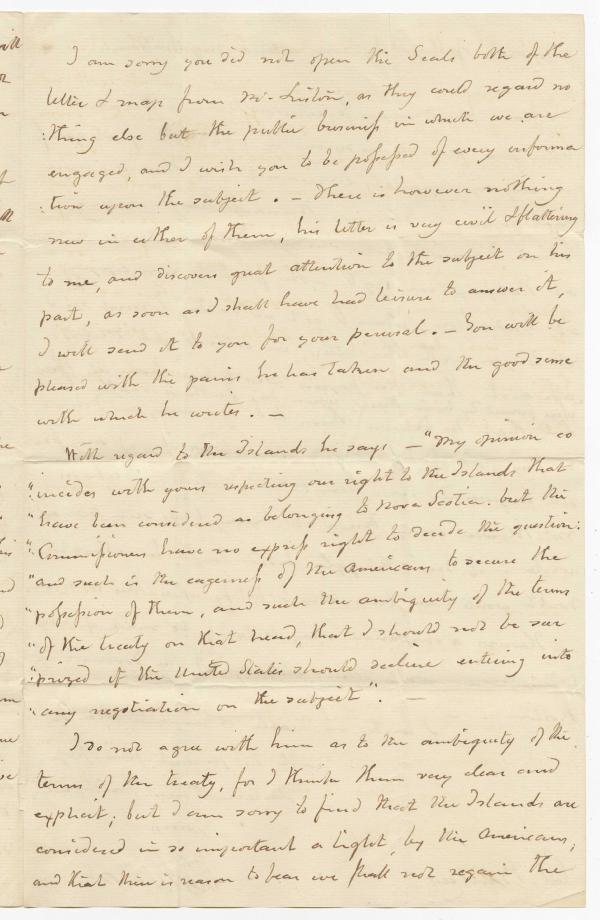 I am sorry you did not open the Seals both of the
letter & map from Mr. Liston, as they could regard no
:thing else but the public business in which we are
engaged, and I wish you to be possessed of every informa
:tion upon the subject. — There is however nothing
new in either of them, his letter is very civil & flattering
to me, and discovers great attention to the subject on his
part, as soon as I shall have had leisure to answer it,
I will send it to you for your perusal. — You will be
pleased with the pains he has taken and the good sense
with which he writes. —
With regard to the Islands he says — "My opinion co
":incides with yours respecting our right to the Islands that
"have been considered as belonging to Nova Scotia. but the
"Commissioners have no express right to decide the question:
"and such is the eagerness of the Americans to secure the
"possession of them, and such the ambiguity of the terms
"of the treaty on that head, that I should not be sur
":prized if the United States should decline entering into
"any negotiation on the subject". —
I do not agree with him as to the ambiguity of the
terms of the treaty, for I think them very clear and
explicit; but I am sorry to find that the Islands are
considered in so important a light, by the Americans,
and that there is reason to fear we shall not regain the